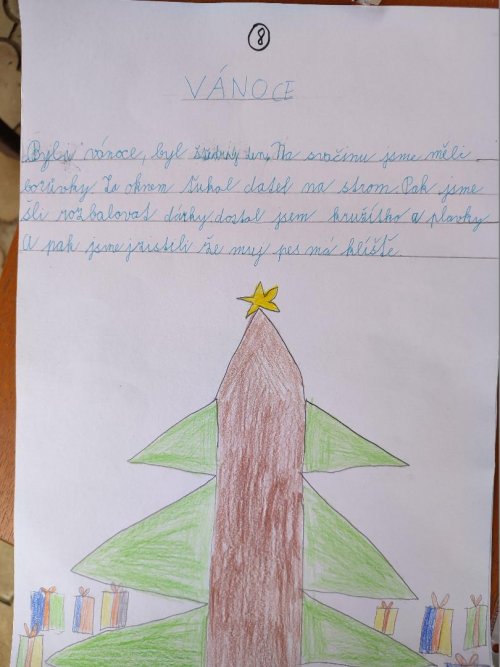 8
VÁNOCE
Byly vánoce, byl štědrý den. Na svačinu jsme měli
borůvky. Za oknem ťukal datel na strom. Pak jsme
šli rozbalovat dárky dostal jsem kružítko a plavky
A pak jsme jzistili že muj pes má klíště.